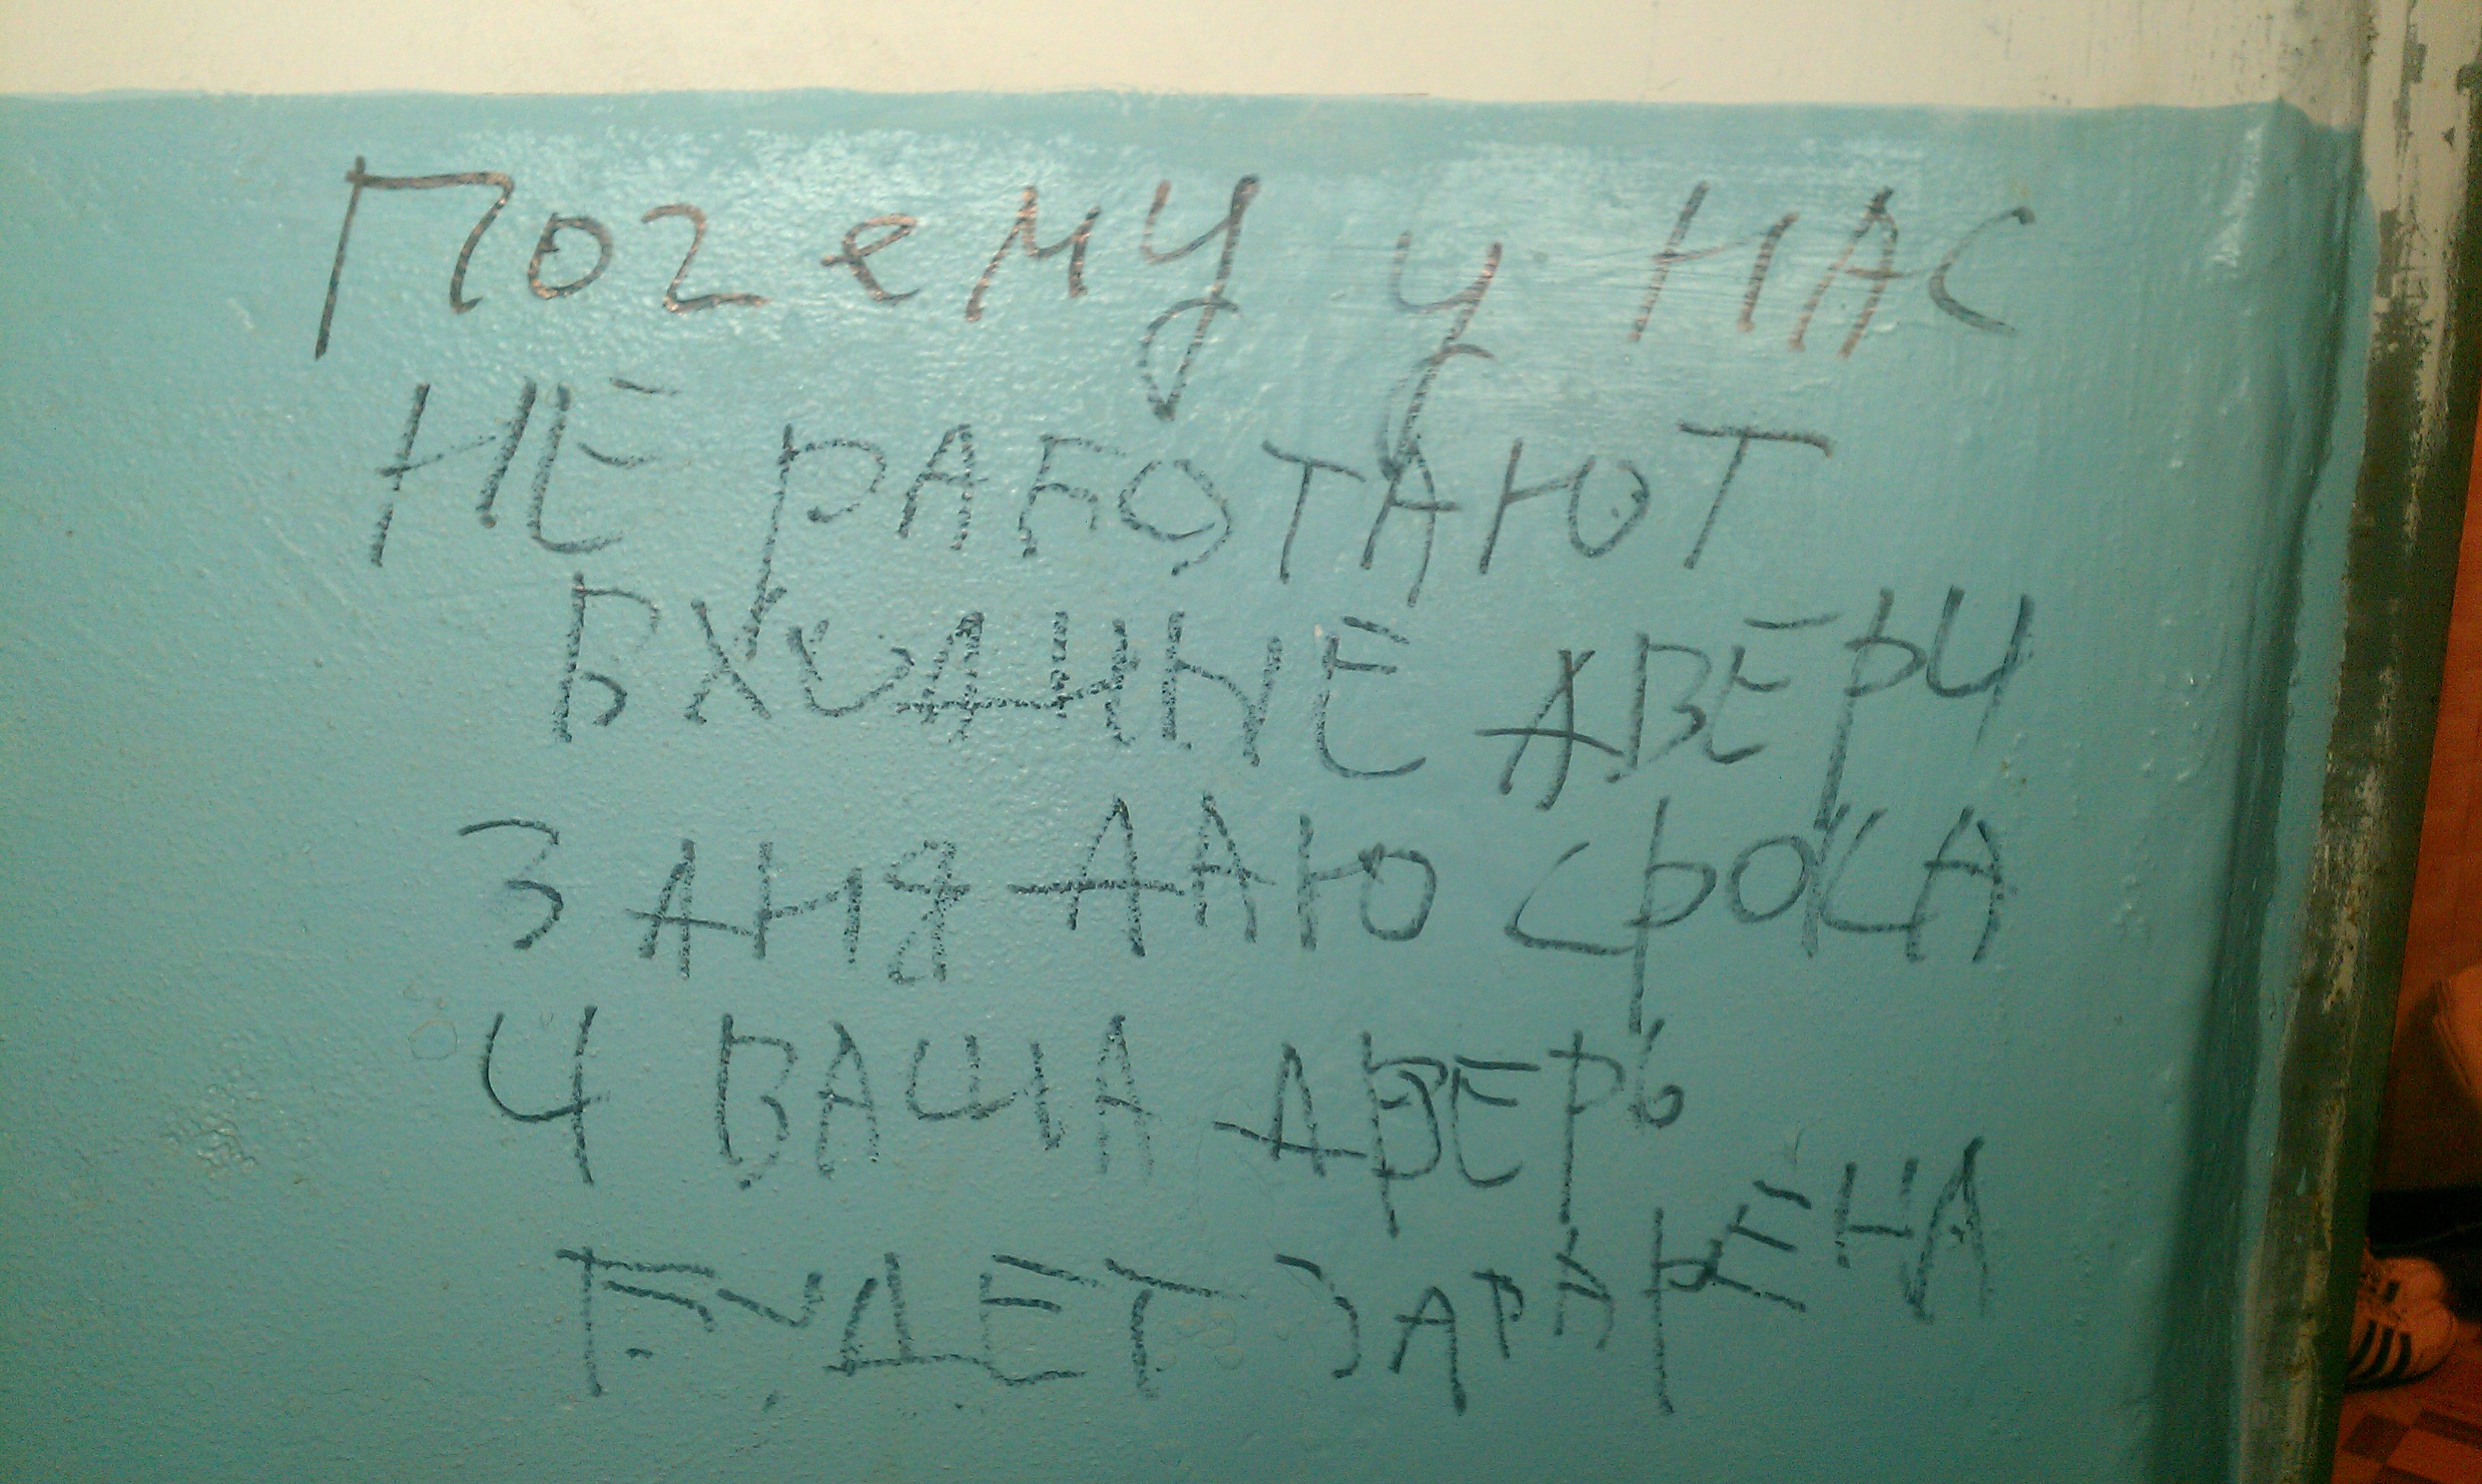 Почему у нас
не работают
входные двери
3 дня даю срока
и ваша дверь
будет заварена